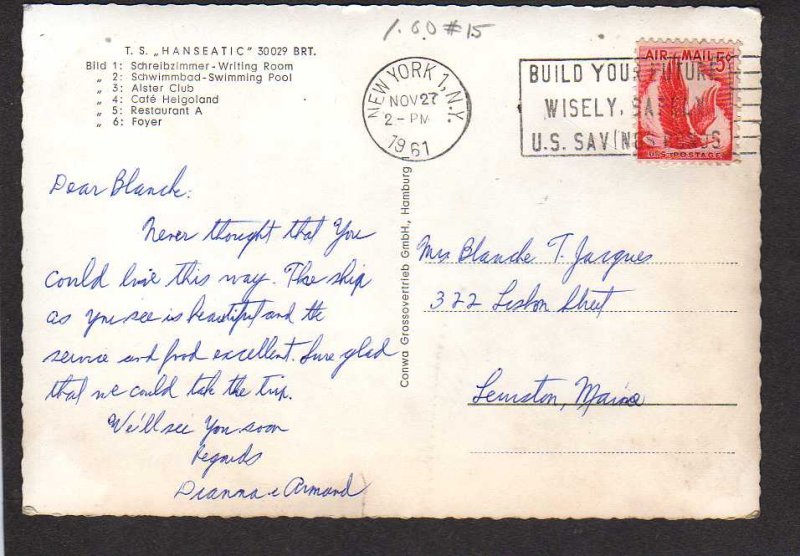 1.00 #15
T. S. „HANSEATIC" 30029 BRT.
Bild 1: Schreibzimmer-Writing Room
„ 2: Schwimmbad-Swimming Pool
„ 3: Alster Club
„ 4: Café Helgoland
„ 5: Restaurant A
„ 6: Foyer
NEW YORK 1, N.Y.
NOV 27
2-PM
1961
BUILD YOUR FUTURE
WISELY,
U.S. SAVINGS
AIR MAIL 5¢
U.S. POSTAGE
Dear Blanch:
Never thought that You
could live this way. The ship
as you see is beautiful and the
service and food excellent. Sure glad
that we could take the trip.
We'll see You soon
Regards
Dianna & Armand
Conwa Grossovertrieb GmbH., Hamburg
Mrs Blanche T. Jacques
322 Lisbon Street
Lewiston, Maine